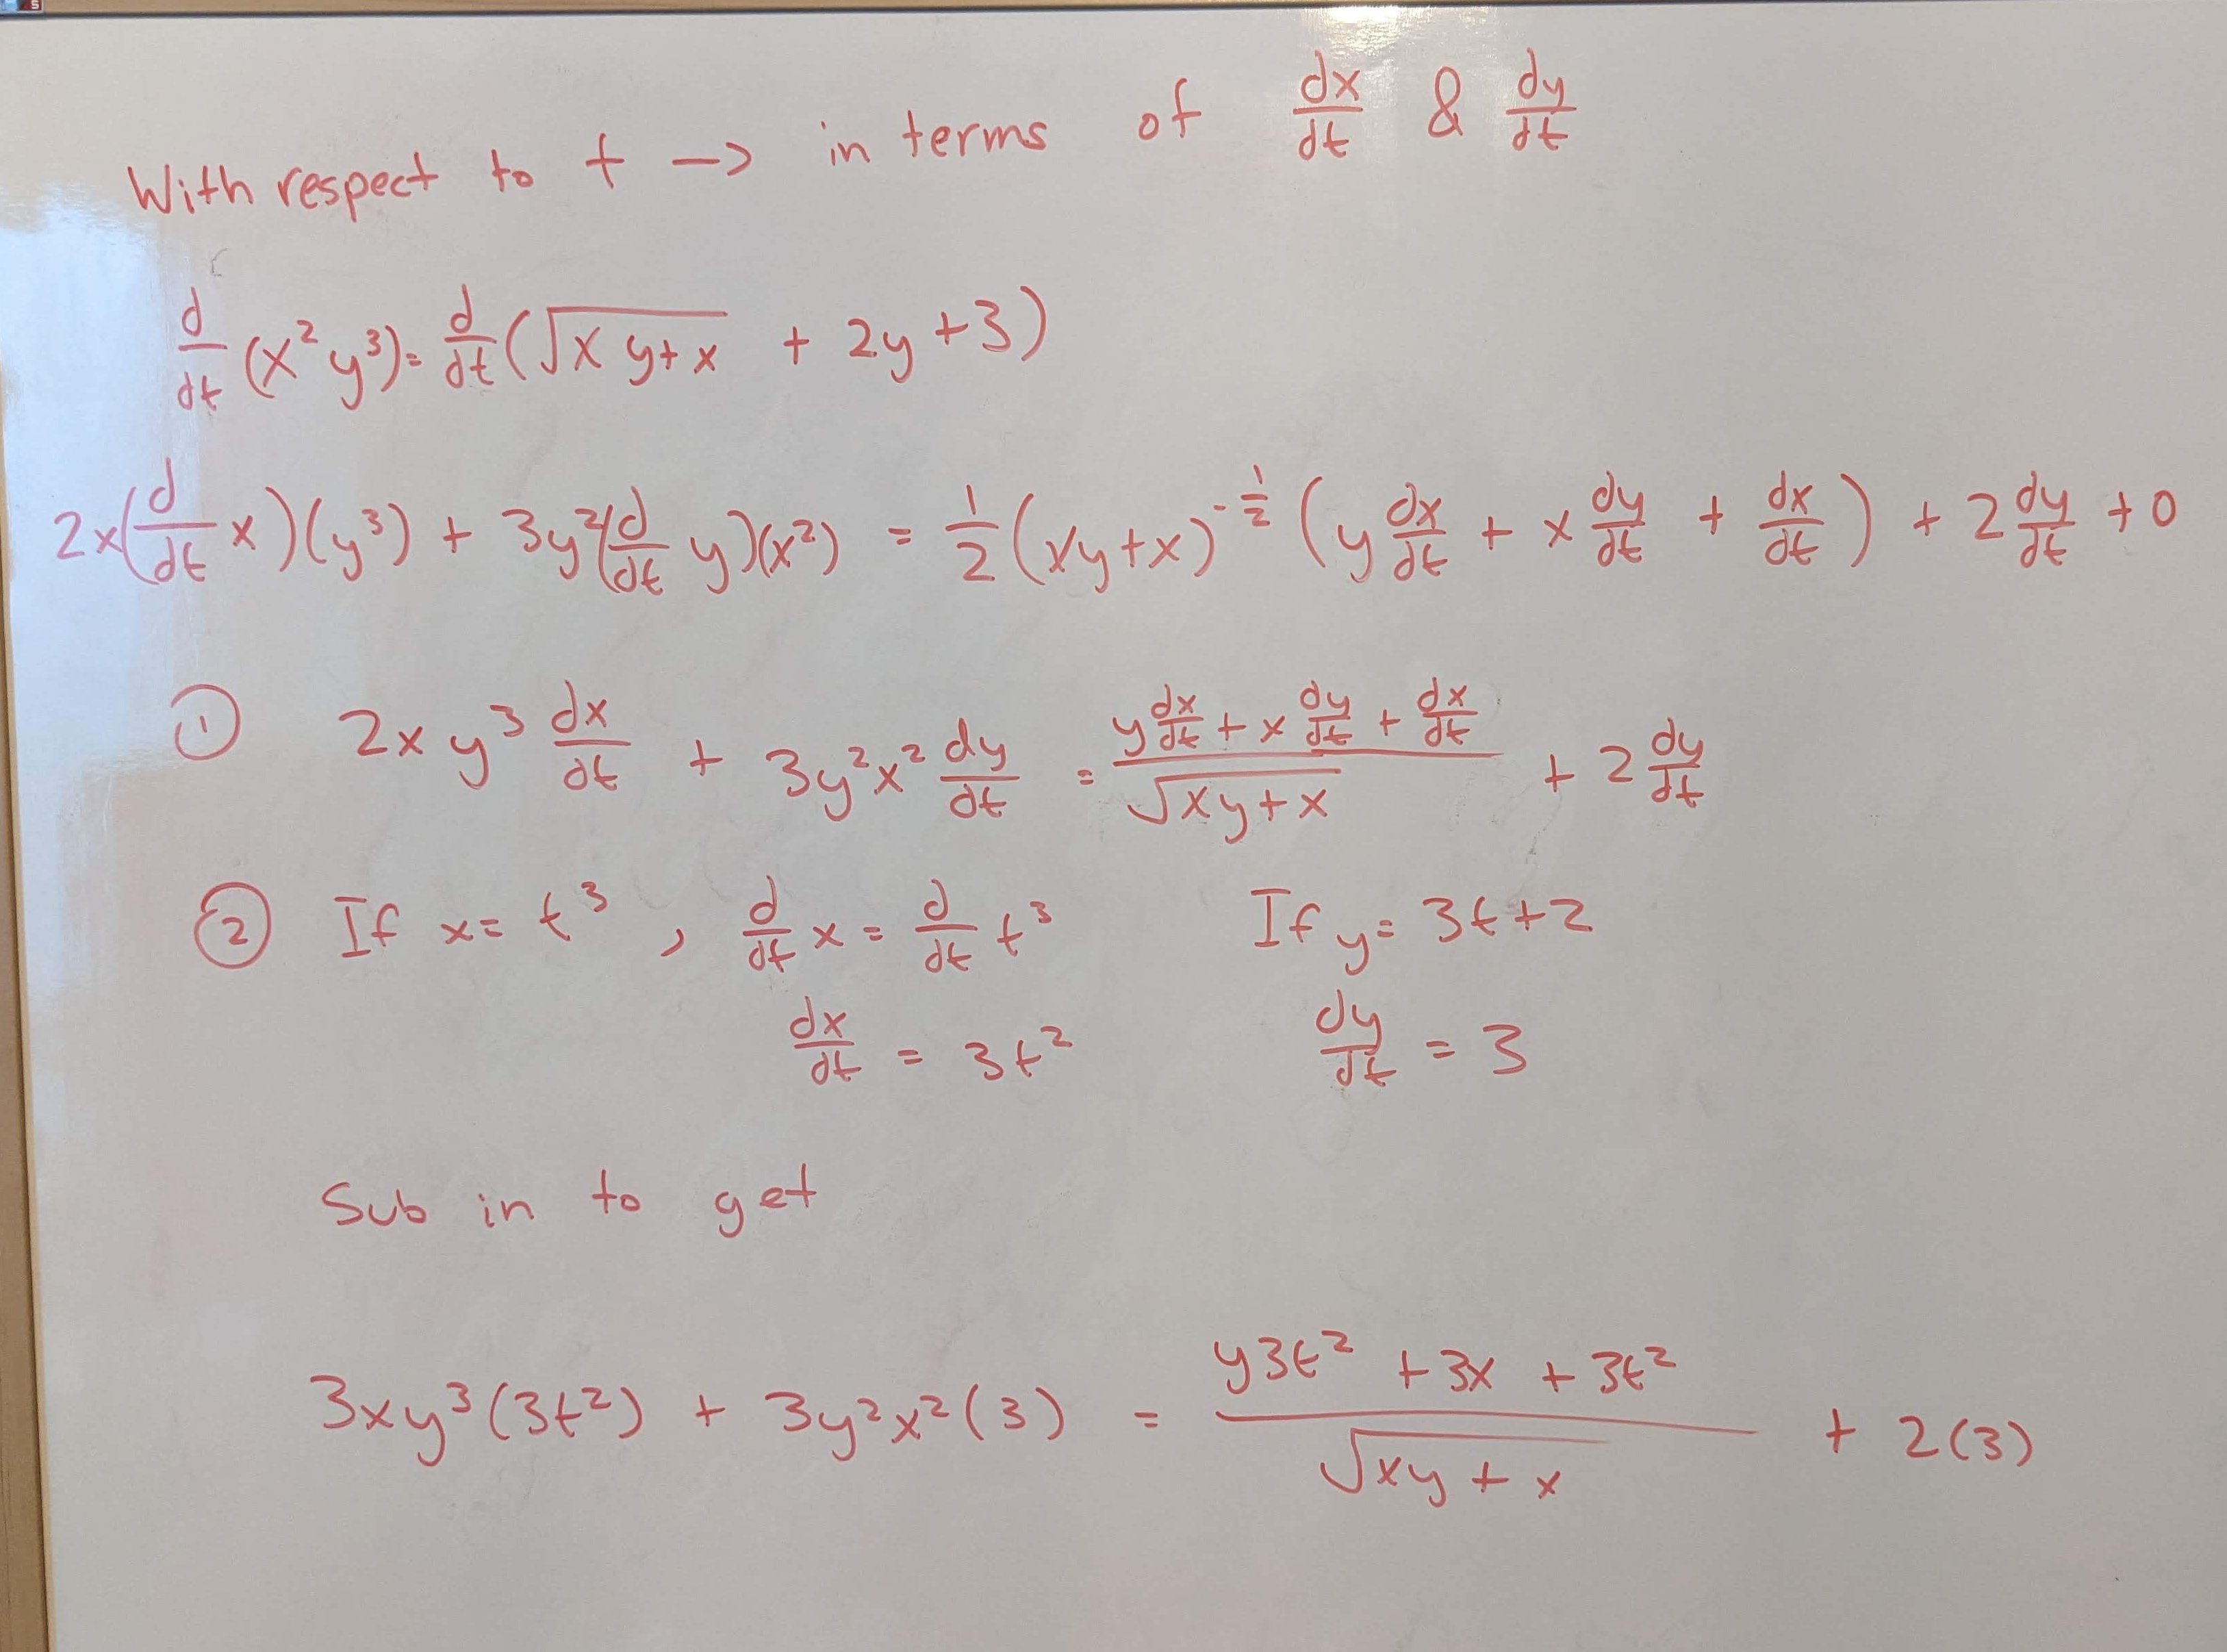 With respect to t -> in terms of dx/dt & dy/dt
d/dt (x² y³) = d/dt (√(x y + x) + 2y + 3)
2x(d/dt x)(y³) + 3y²(d/dt y)(x²) = 1/2 (xy+x)^(-1/2) (y dx/dt + x dy/dt + dx/dt) + 2 dy/dt + 0
① 2x y³ dx/dt + 3y²x² dy/dt = (y dx/dt + x dy/dt + dx/dt)/√(xy+x) + 2 dy/dt
② If x = t³ , d/dt x = d/dt t³ If y = 3t+2
dx/dt = 3t² dy/dt = 3
Sub in to get
3xy³(3t²) + 3y²x²(3) = (y3t² + 3x + 3t²)/√(xy + x) + 2(3)